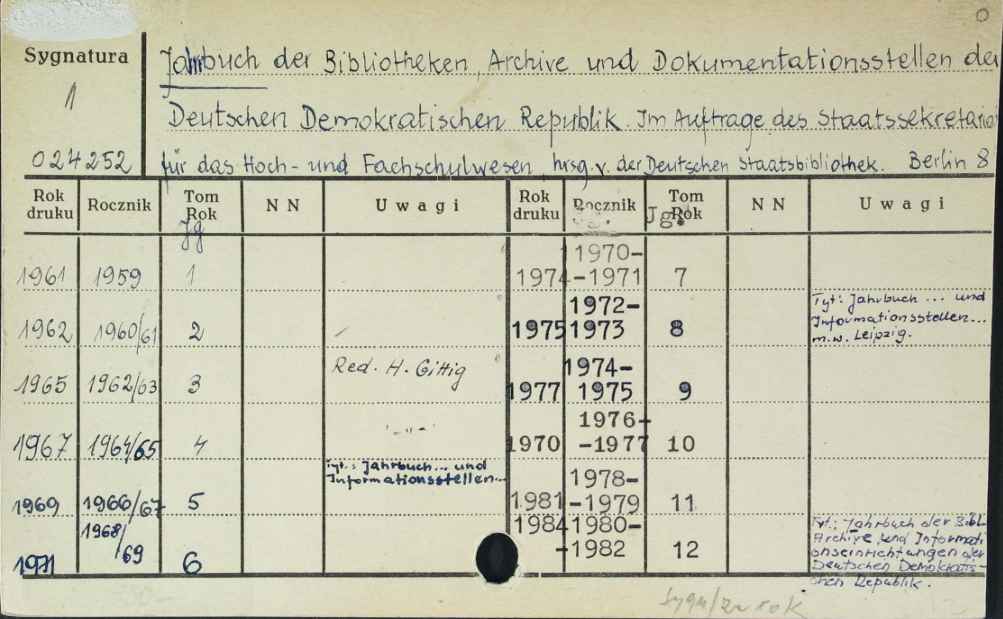 Sygnatura
1
024252
Jahrbuch der Bibliotheken, Archive und Dokumentationsstellen der
Deutschen Demokratischen Republik. Im Auftrage des Staatssekretariats
für das Hoch- und Fachschulwesen hrsg. v. der Deutschen Staatsbibliothek. Berlin 8
Rok druku Rocznik Tom Rok NN Uwagi Rok druku Rocznik Tom Rok NN Uwagi
Jg Jg.
1961 1959 1
1962 1960/61 2
1965 1962/63 3 Red. H. Gittig
1967 1964/65 4 -"-
Tyt.: Jahrbuch... und
Informationsstellen...
1969 1966/67 5
1971 1968/69 6
1974 1970-
-1971 7
1975 1972-
1973 8
Tyt: Jahrbuch ... und
Informationsstellen...
m.w. Leipzig.
1977 1974-
1975 9
1970 1976-
-1977 10
1981 1978-
-1979 11
1984 1980-
-1982 12
Tyt.: Jahrbuch der Bibl.
Archive und Informati
onseinrichtungen der
Deutschen Demokratis-
chen Republik.